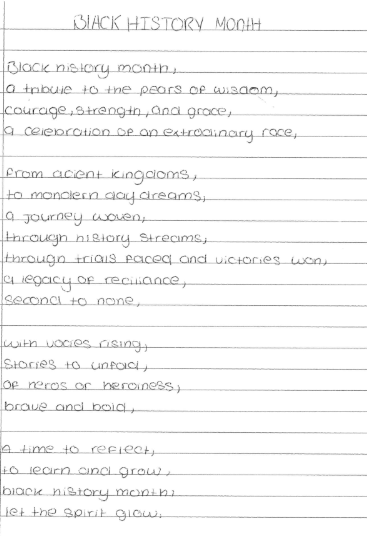 BLACK HISTORY MONTH
Black history month,
a tribute to the pears of wisdom,
courage, strength, and grace,
a celebration of an extrodinary race,
from acient kingdoms,
to mondern day dreams,
a journey woven,
through history streams,
through trials faced and victories won,
a legacy of reciliance,
second to none,
with vocies rising,
stories to unfold,
of heros or heroiness,
brave and bold,
a time to reflect,
to learn and grow,
black history month,
let the spirit glow.